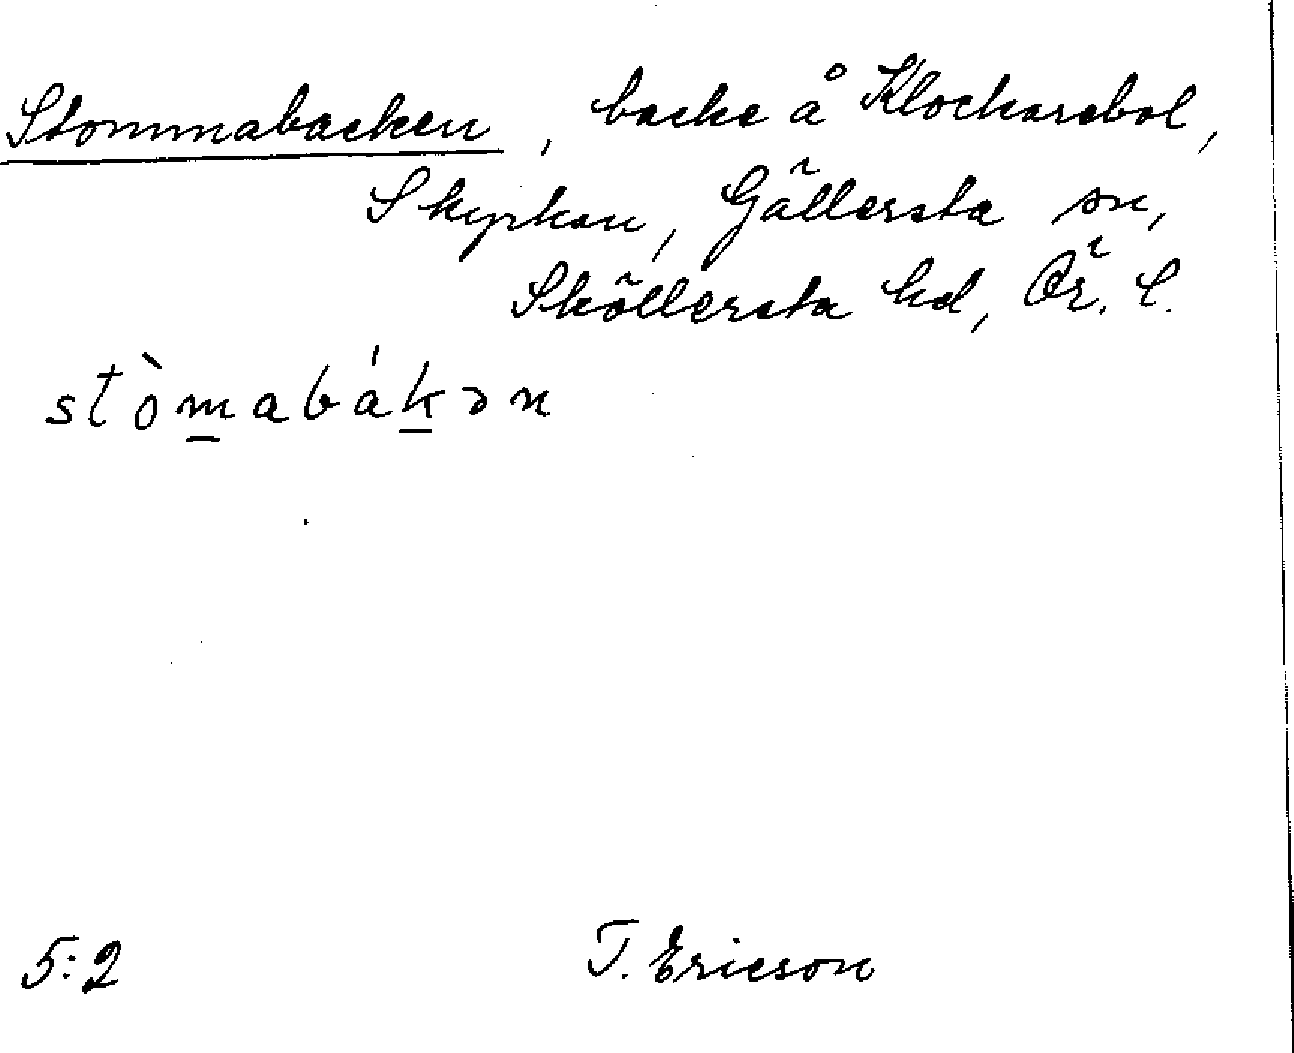 Stommabacken, backe å Klockarebol,
Skyrkan, Gällersta sn,
Sköllersta hd, Ör. l.
stòm̲abák̲ən
5:2 T. Ericson